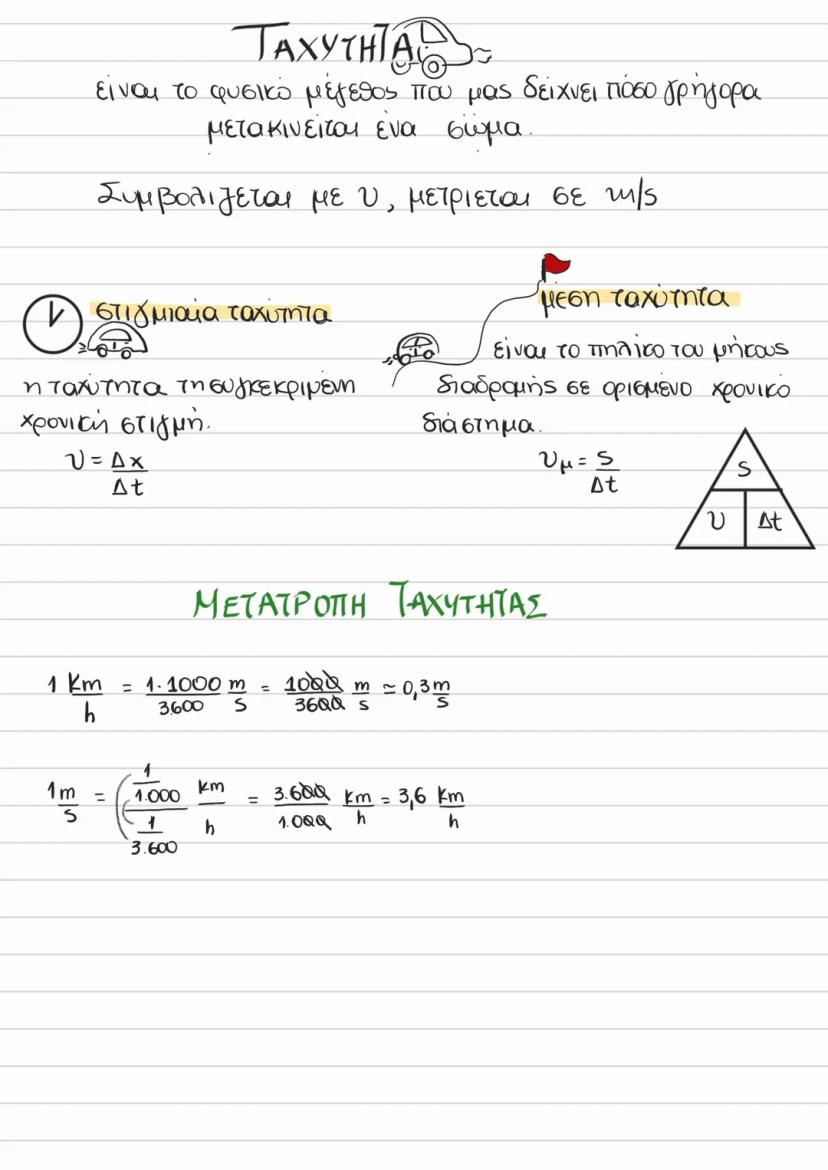 ΤΑΧΥΤΗΤΑ
είναι το φυσικό μέγεθος που μας δείχνει πόσο γρήγορα
μετακινείται ένα σώμα.
Συμβολίζεται με υ, μετριεται σε m/s
στιγμιαία ταχύτητα
η ταχύτητα τη συγκεκριμένη
χρονική στιγμή.
υ = Δx/Δt
μέση ταχύτητα
είναι το πηλίκο του μήκους
διαδρομής σε ορισμένο χρονικό
διάστημα.
υμ = s/Δt
S
υ Δt
ΜΕΤΑΤΡΟΠΗ ΤΑΧΥΤΗΤΑΣ
1 Km/h = 1·1000/3600 m/s = 1000/3600 m/s ≃ 0,3 m/s
1 m/s = (1/1.000)/(1/3.600) km/h = 3.600/1.000 km/h = 3,6 km/h